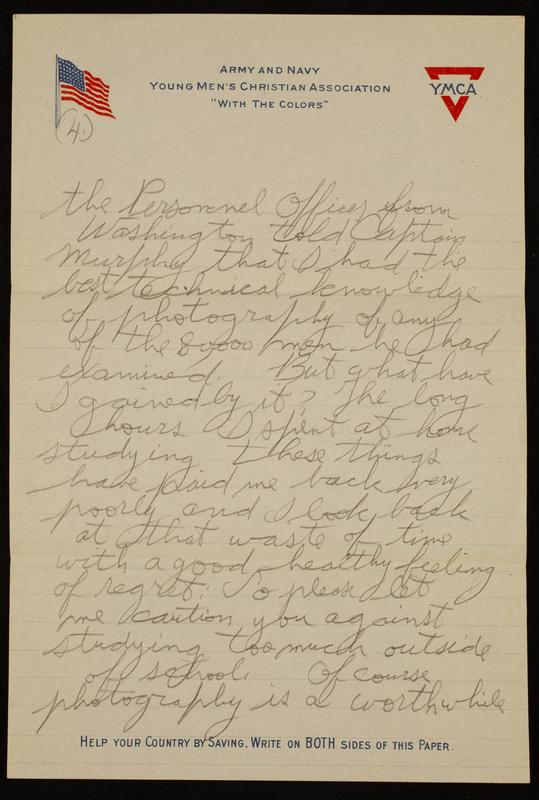 ARMY AND NAVY
YOUNG MEN'S CHRISTIAN ASSOCIATION
"WITH THE COLORS"
YMCA
(4)
the Personnel Officer from
Washington told Captain
Murphy that I had the
best technical knowledge
of photography of any
of the 80000 men he had
examined. But what have
I gained by it? The long
hours I spent at home
studying these things
have paid me back very
poorly and I look back
at that waste of time
with a good healthy feeling
of regret. So please let
me caution you against
studying too much outside
of school. Of course
photography is a worthwhile
HELP YOUR COUNTRY BY SAVING. WRITE ON BOTH SIDES OF THIS PAPER.